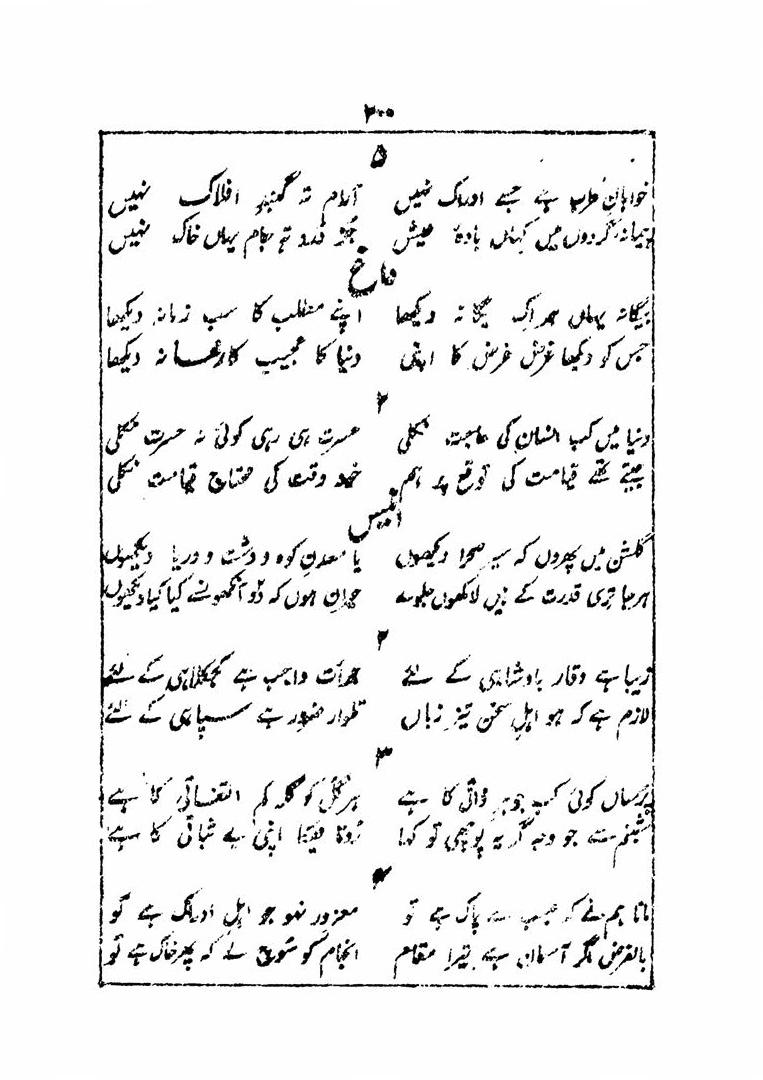 ۳۰۰
۵
خواہانِ طرب ہے جسے ادراک نہیں آرام تہ گنبدِ افلاک نہیں
پیمانۂ گردوں میں کہاں بادۂ عیش جز درد تہ جام یہاں خاک نہیں
بیگانہ یہاں ہر اک یگانہ دیکھا اپنے مطلب کا سب زمانہ دیکھا
جس کو دیکھا غرض غرض کا اپنی دنیا کا عجیب کارخانہ دیکھا
۲
دنیا میں کب انسان کی حاجت نکلی حسرت ہی رہی کوئی نہ حسرت نکلی
جیتے تھے قیامت کی توقع پر ہم خود وقت کی محتاج قیامت نکلی
انیس
گلشن میں پھروں کہ سیر صحرا دیکھوں یا معدنِ کوہ و دشت و دریا دیکھوں
ہر جا تری قدرت کے ہیں لاکھوں جلوے حیران ہوں کہ دو آنکھوں سے کیا کیا دیکھوں
۲
زیبا ہے وقار بادشاہی کے لئے جرأت واجب ہے کجکلاہی کے لئے
لازم ہے کہ ہو اہلِ سخن تیز زباں تلوار ضرور ہے سپاہی کے لئے
۳
پرساں کوئی کب جوہر ذاتی کا ہے ہر گل کو گلہ کم التفاتی کا ہے
شبنم سے جو وجہ گریہ پوچھی تو کہا رونا فقط اپنی بے ثباتی کا ہے
۴
مانا ہم نے کہ عیب سے پاک ہے تو مغرور نہو جو اہل ادراک ہے تو
بالفرض اگر آسمان ہے تیرا مقام انجام کو سوچ لے کہ پھر خاک ہے تو